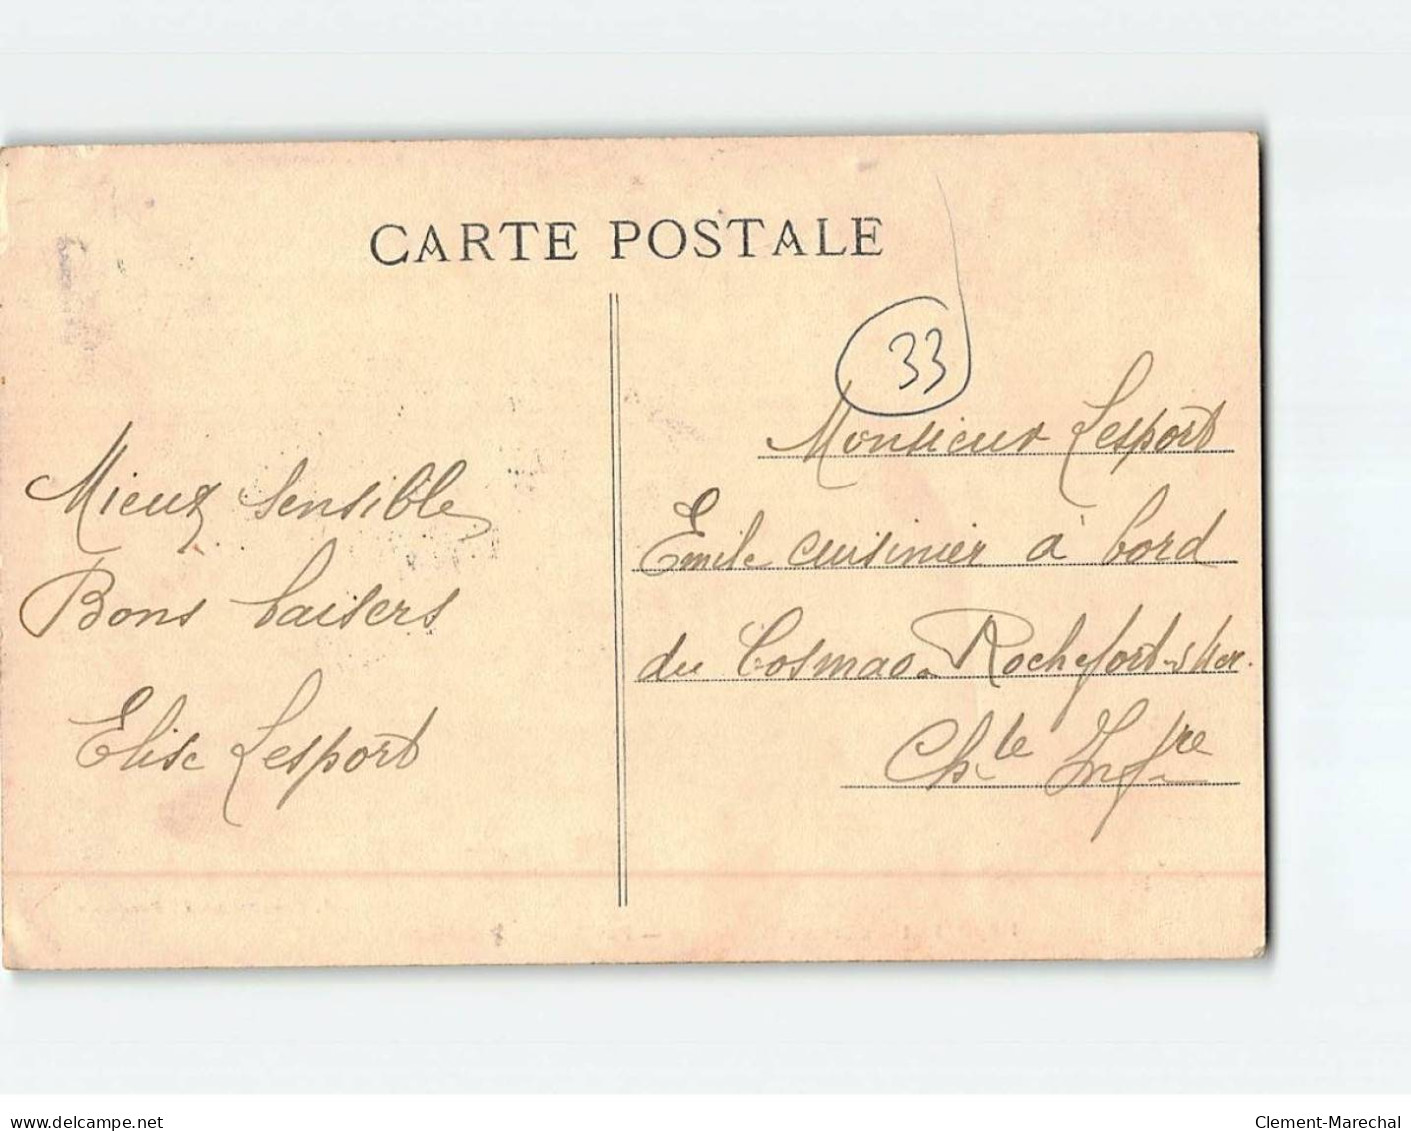 CARTE POSTALE
33
Mieux sensible
Bons baisers
Elise Lesport
Monsieur Lesport
Emile cuisinier à bord
du Cosmao. Rochefort-s/Mer.
Ch.te Infre
delcampe.net
Clement-Marechal